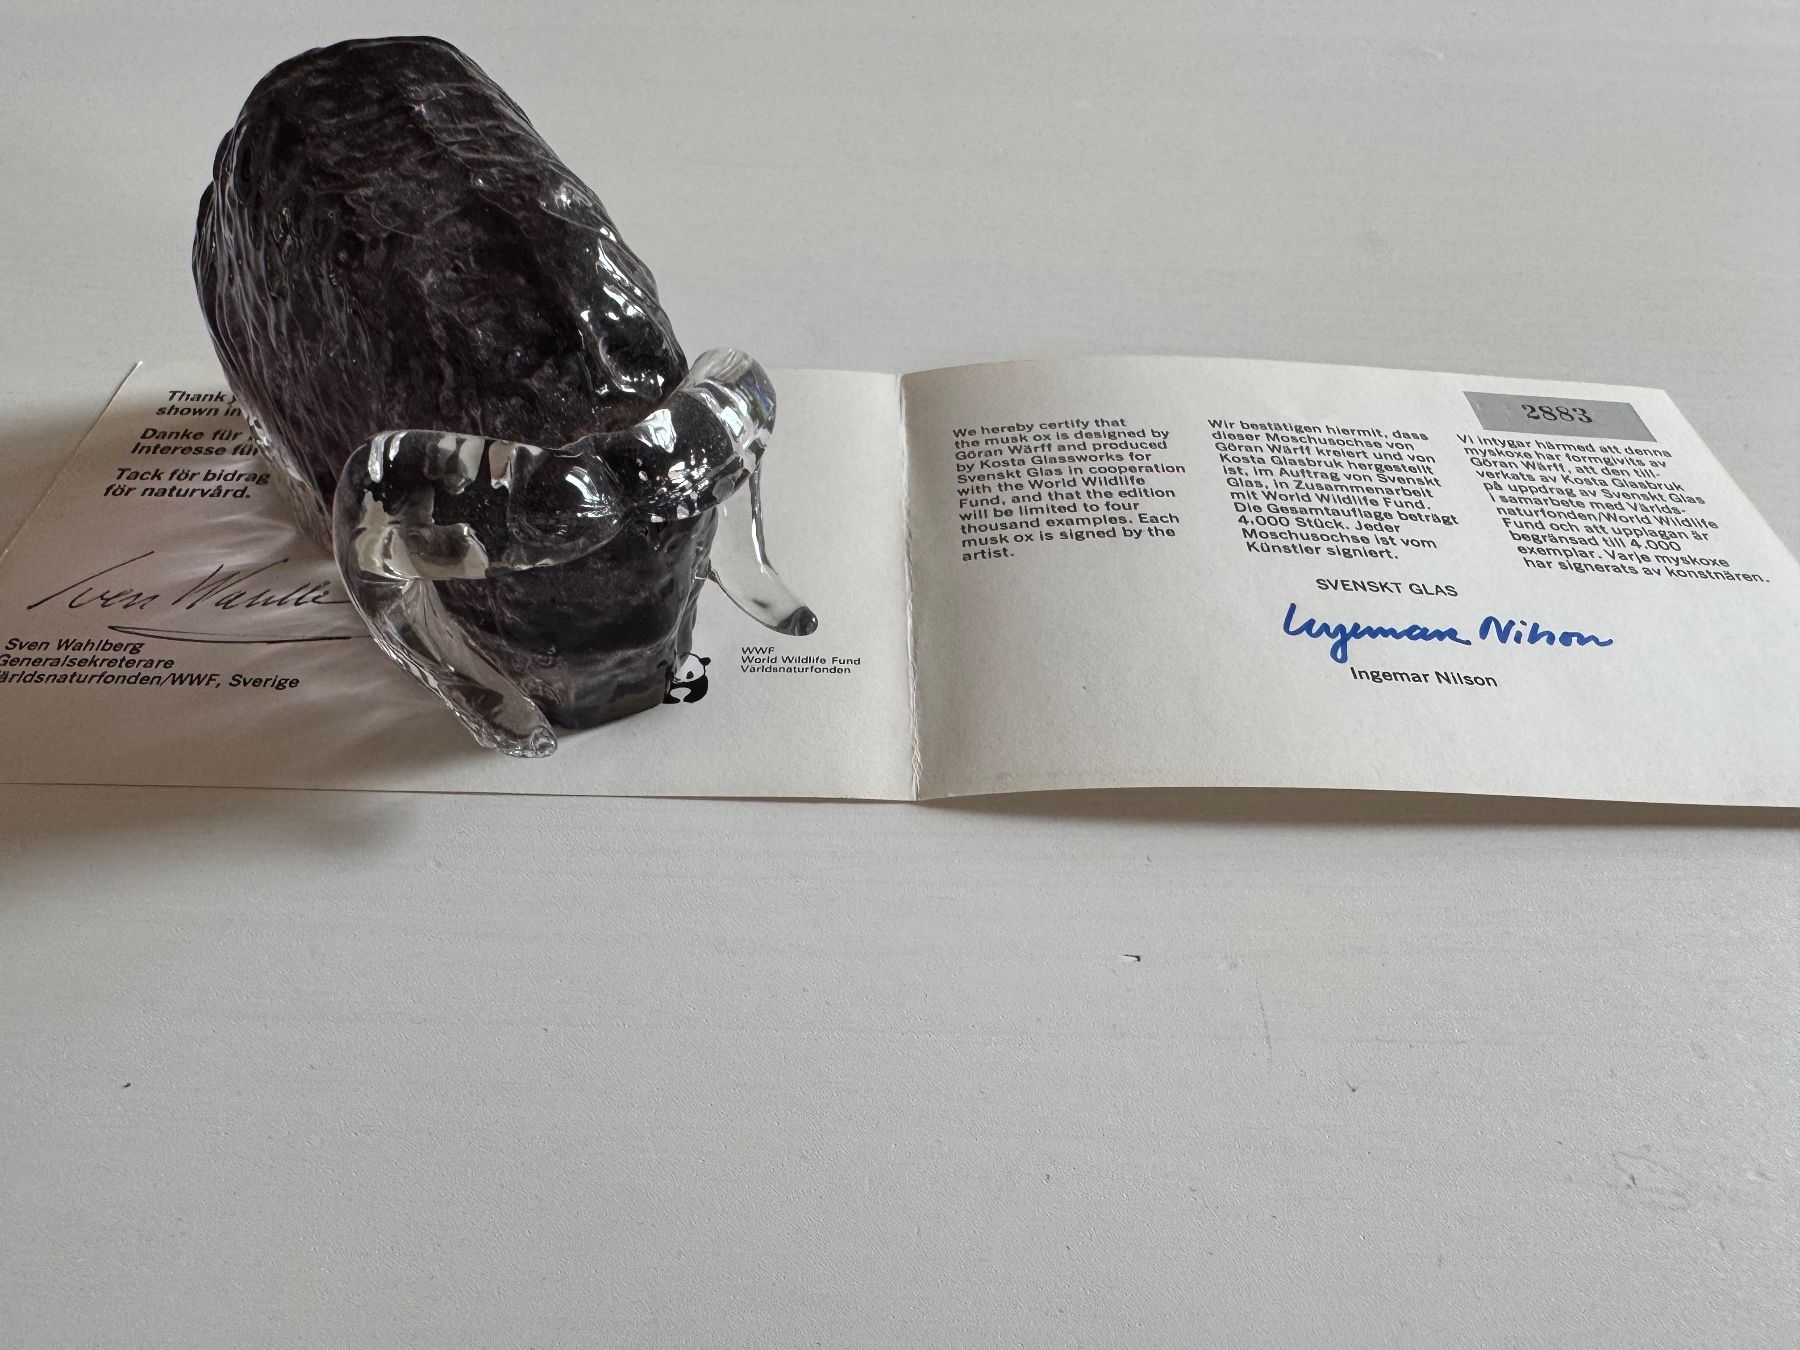 Thank
shown in
Danke für
Interesse für
Tack för bidrag
för naturvård.
Sven Wahlberg
Generalsekreterare
Världsnaturfonden/WWF, Sverige
WWF
World Wildlife Fund
Världsnaturfonden
We hereby certify that
the musk ox is designed by
Göran Wärff and produced
by Kosta Glassworks for
Svenskt Glas in cooperation
with the World Wildlife
Fund, and that the edition
will be limited to four
thousand examples. Each
musk ox is signed by the
artist.
Wir bestätigen hiermit, dass
dieser Moschusochse von
Göran Wärff kreiert und von
Kosta Glasbruk hergestellt
ist, im Auftrag von Svenskt
Glas, in Zusammenarbeit
mit World Wildlife Fund.
Die Gesamtauflage beträgt
4.000 Stück. Jeder
Moschusochse ist vom
Künstler signiert.
2883
Vi intygar härmed att denna
myskoxe har formgivits av
Göran Wärff, att den till-
verkats av Kosta Glasbruk
på uppdrag av Svenskt Glas
i samarbete med Världs-
naturfonden/World Wildlife
Fund och att upplagan är
begränsad till 4.000
exemplar. Varje myskoxe
har signerats av konstnären.
SVENSKT GLAS
Ingemar Nilson
Ingemar Nilson